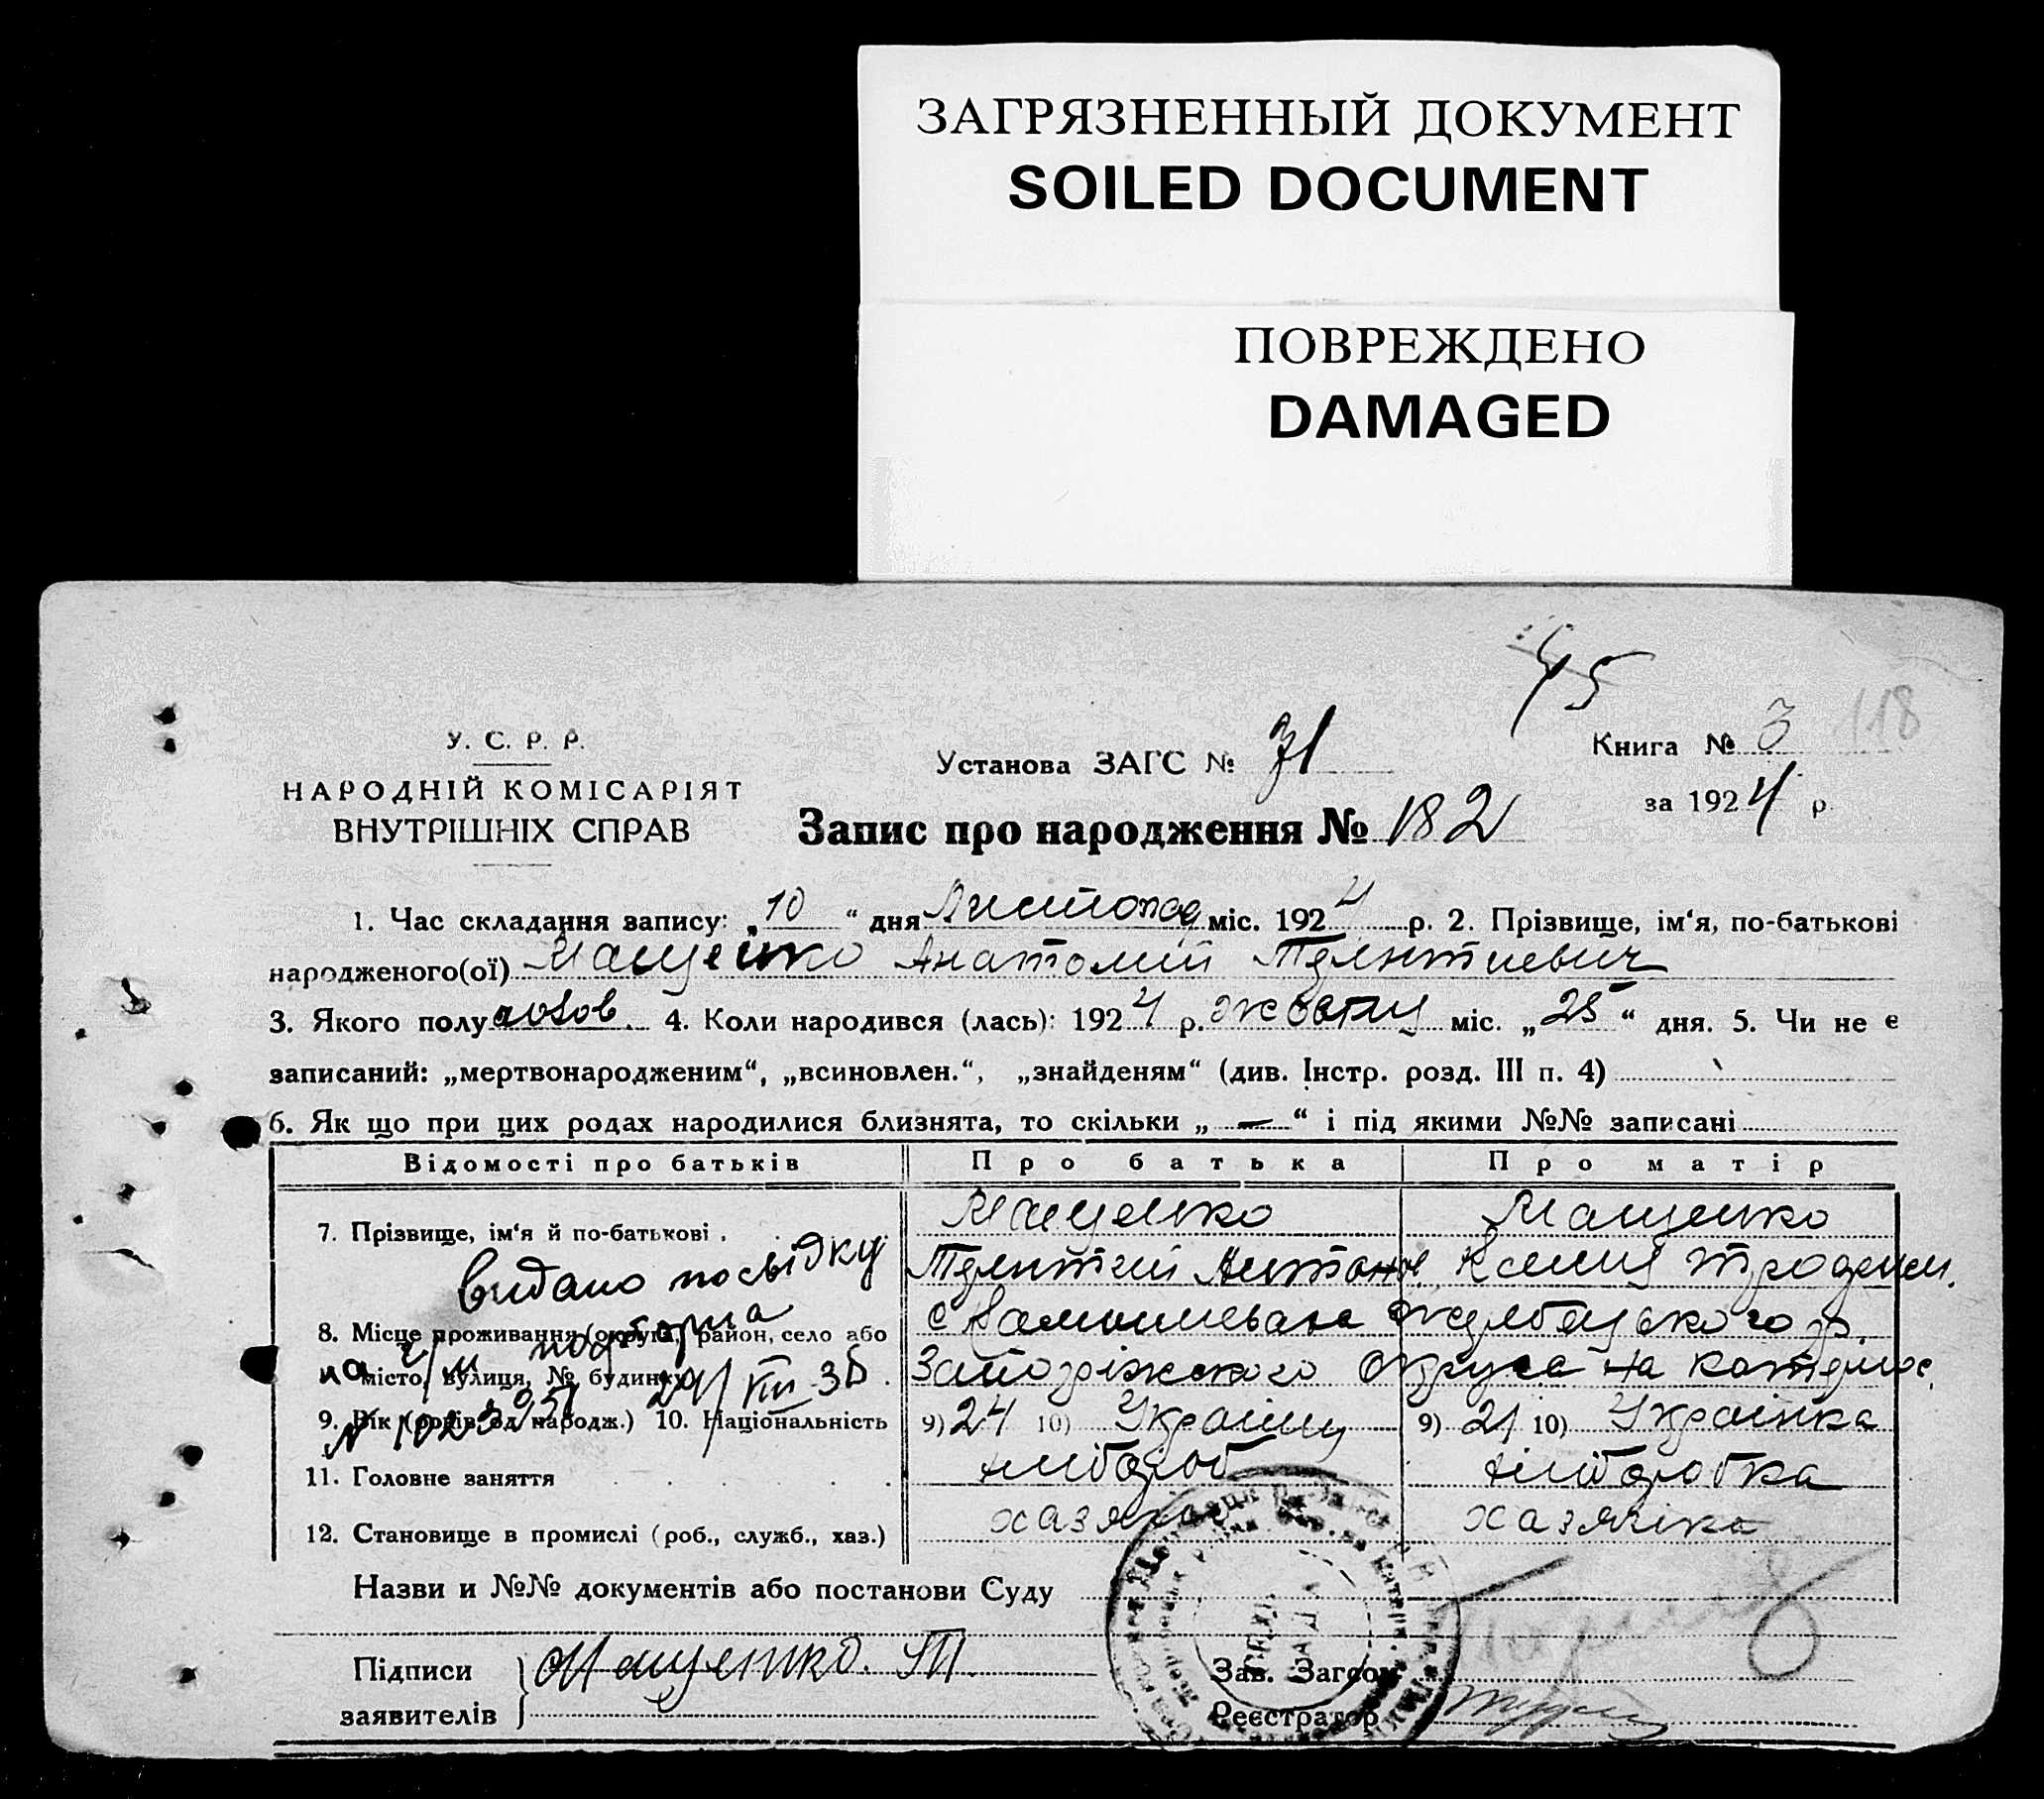 ЗАГРЯЗНЕННЫЙ ДОКУМЕНТ
SOILED DOCUMENT
ПОВРЕЖДЕНО
DAMAGED
45
118
У. С. Р. Р.
НАРОДНІЙ КОМІСАРІЯТ
ВНУТРІШНІХ СПРАВ
Установа ЗАГС № 71
Книга № 3
за 1924 р.
Запис про народження № 182
1. Час складання запису: „10“ дня Листопад міс. 1924 р. 2. Прізвище, ім‘я, по-батькові
народженого(ої) Мащенко Анатолий Терентиевич
3. Якого полу 4. Коли народився (лась): 1924 р. жовтн міс. „25“ дня. 5. Чи не є
записаний: „мертвонародженим“, „всиновлен.“, „знайденям“ (див. Інстр. розд. III п. 4)
6. Як що при цих родах народилися близнята, то скільки „—“ і під якими №№ записані
Відомості про батьків Про батька Про матір
7. Прізвище, ім‘я й по-батькові . Мащенко Мащенко
Терентий Антонов Ксения
видано посвідку
8. Місце проживання (округа, район, село або
місто, вулиця, № будинку) .
с Камишеваха Жеребецького р.
Запоріжського Округа на Катеринос.
9. Вік (років од народж.) 10. Національність 9) 24 10) Українц 9) 21 10) Українка
11. Головне заняття . . . . хлібороб хліборобка
12. Становище в промислі (роб., служб., хаз.) хазяїн хазяїнка
Назви и №№ документів або постанови Суду
Підписи
заявителів
Мащенко. Т.
Зав. Загсом
Реєстратор